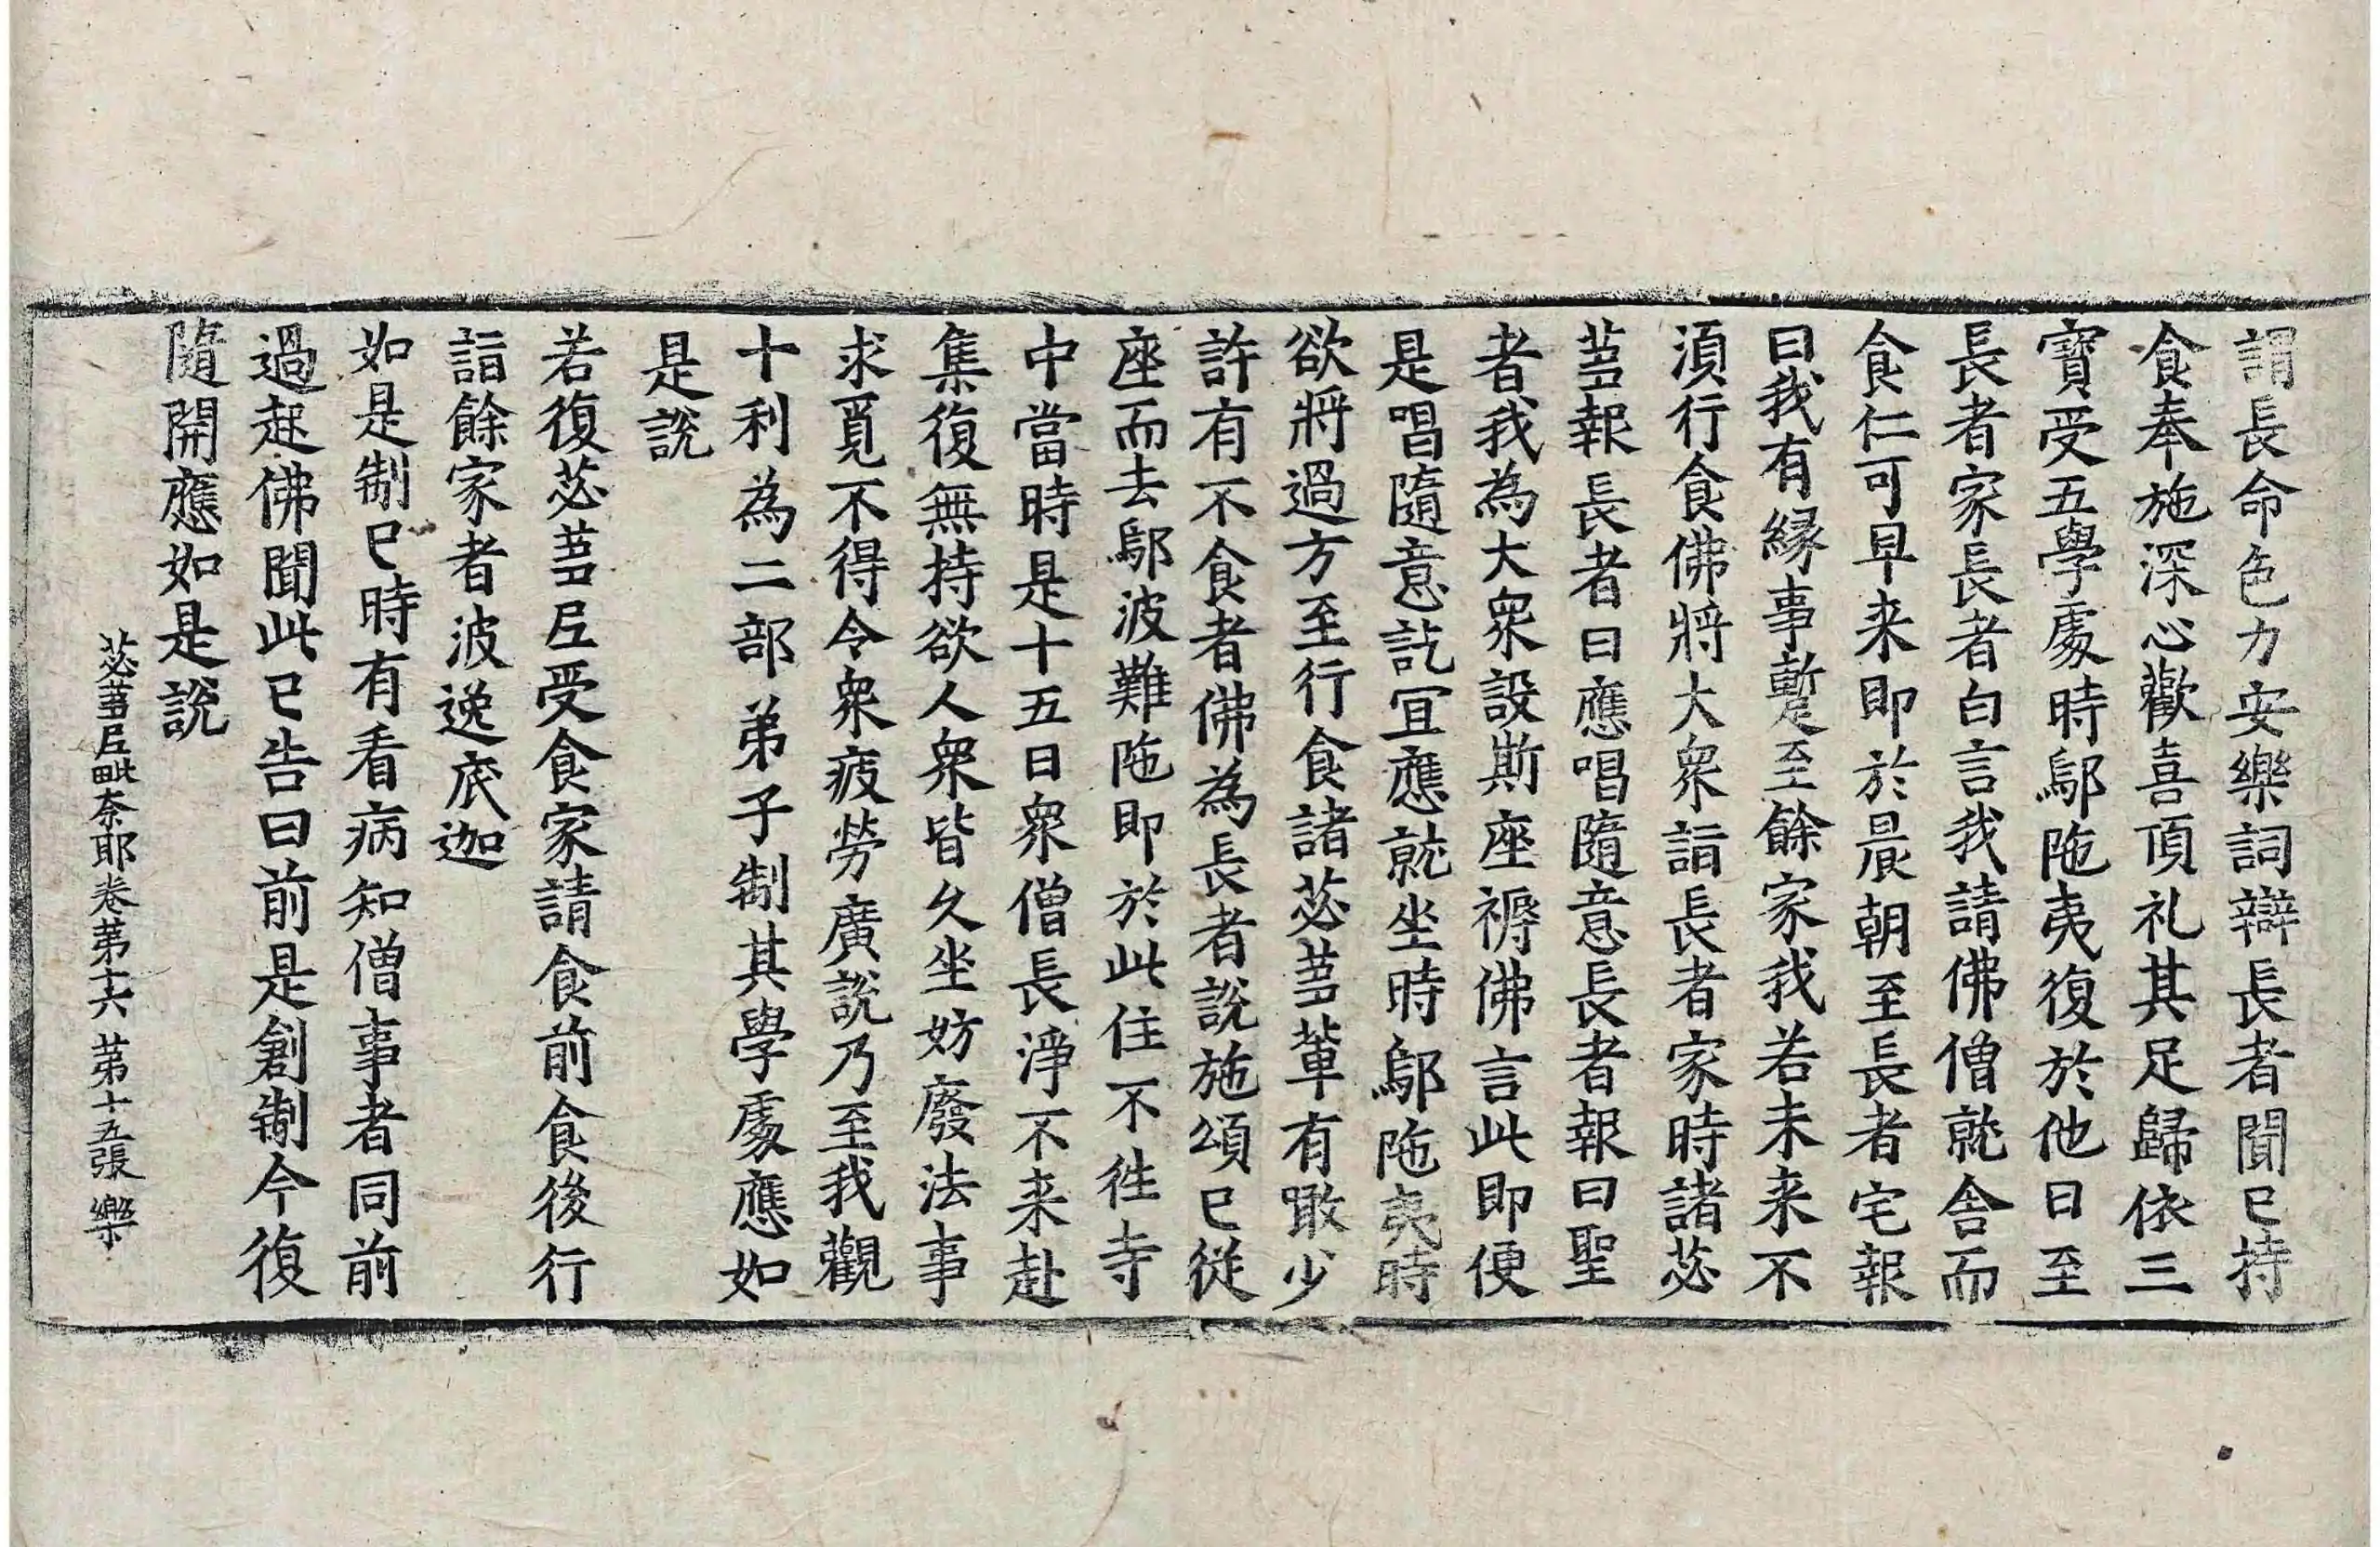 謂長命色力安樂詞辯長者聞已持
食奉施深心歡喜頂礼其足歸依三
寶受五學處時鄔陁夷復於他日至
長者家長者白言我請佛僧就舍而
食仁可早来即於晨朝至長者宅報
曰我有緣事暫至餘家我若未来不
湏行食佛將大衆詣長者家時諸苾
蒭報長者曰應唱隨意長者報曰聖
者我為大衆設斯座褥佛言此即便
是唱隨意訖冝應就坐時鄔陁夷時
欲將過方至行食諸苾蒭輩有噉少
許有不食者佛為長者說施頌已從
座而去鄔波難陁即於此住不徃寺
中當時是十五日衆僧長淨不来赴
集復無持欲人衆皆久坐妨廢法事
求覓不得令衆疲勞廣說乃至我觀
十利為二部弟子制其學處應如
是說
若復苾蒭尼受食家請食前食後行
詣餘家者波逸底迦
如是制已時有看病知僧事者同前
過起佛聞此已告曰前是創制今復
隨開應如是說
苾蒭尼毗奈耶卷苐十六 苐十五張 樂